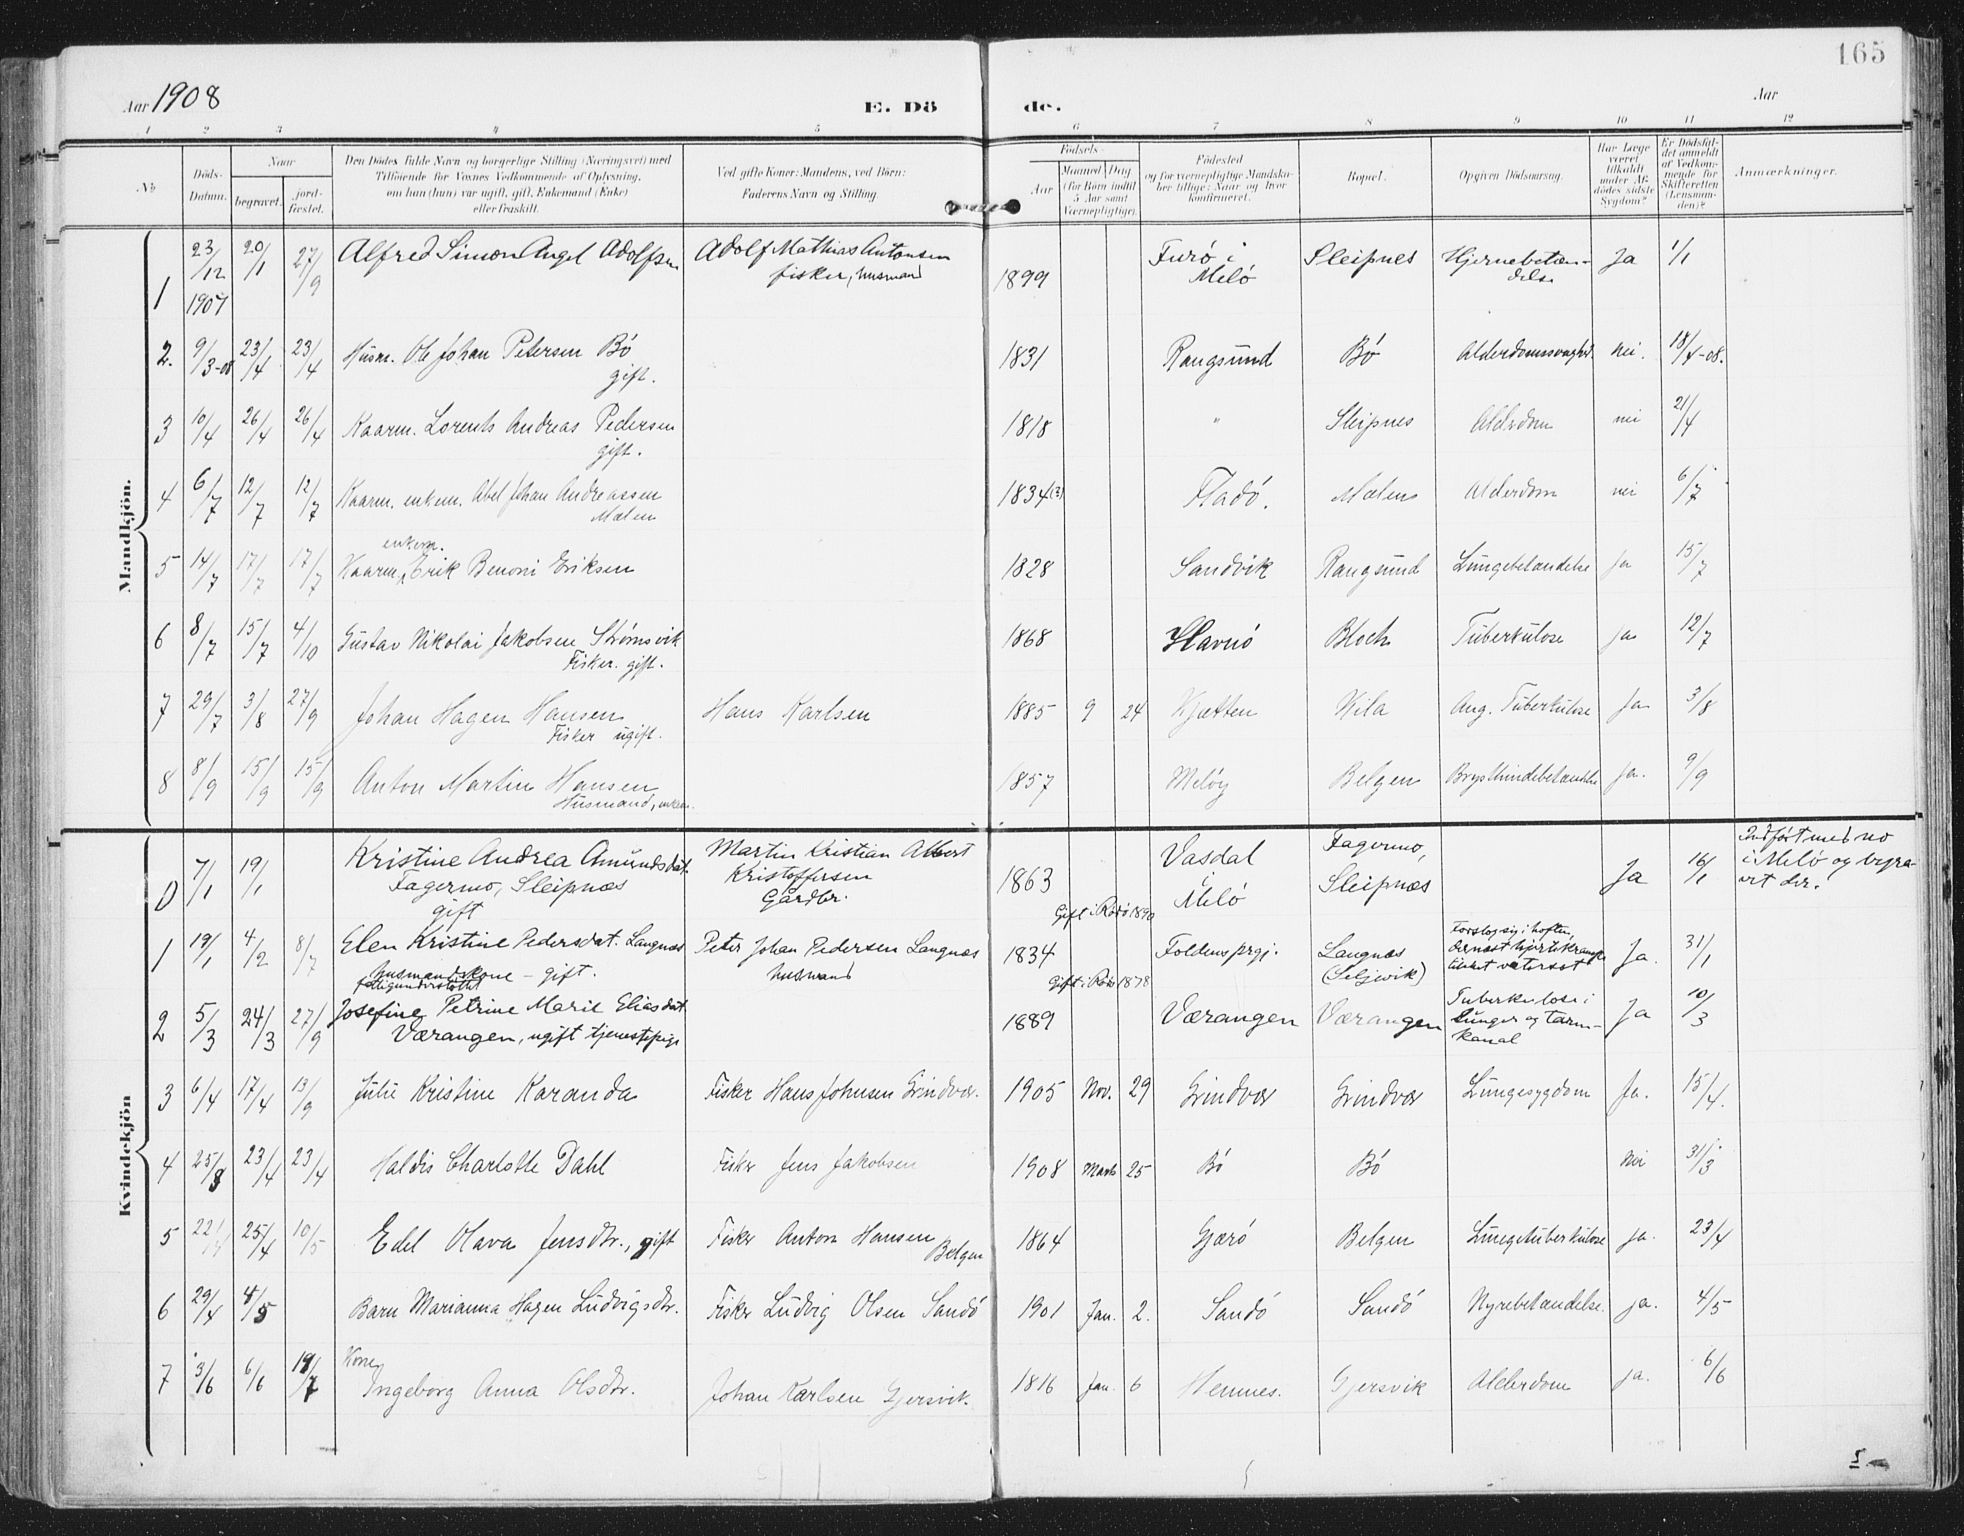 165
Aar 1908
E. Dö de.
Aar
1 2 3 4 5 6 7 8 9 10 11 12
No
Döds-Datum.
Naar
begravet.
jord-fæstet.
Den Dödes fulde Navn og borgerlige Stilling (Næringsvei) med
Tilföiende for Voxnes Vedkommende af Oplysning,
om han (hun) var ugift, gift, Enkemand (Enke)
eller fraskilt.
Ved gifte Koner: Mandens, ved Börn:
Faderens Navn og Stilling.
Födsels-
Aar
Maaned Dag
(for Börn indtil
5 Aar samt
Værnepligtige).
Födested
og for værnepligtige Mandska-
ber tillige: Naar og hvor
konfirmeret.
Bopæl.
Opgiven Dödsaarsag.
Har Læge
været
tilkaldt
under Af-
dödes sidste
Sygdom?
Er Dödsfal-
det anmeldt
af Vedkom-
mende for
Skifteretten
(Lensman-
den)?
Anmærkninger.
Mandkjön.
1 23/12 1907 20/1 27/9 Alfred Simon Angel Adolfsen Adolf Mathias Antonsen 1899 Furö i Sleipnes Hjernebetæn- Ja 1/1
fisker, husmand Melö delse
2. 9/3-08 23/4 23/4 Husm. Ole Johan Petersen Bö 1831 Rangsund Bö Alderdomssvaghed. nei. 18/4-08.
gift.
3 10/4 26/4 26/4 Kaarm. Lorents Andreas Pedersen 1818 " Sleipnes Alderdom nei 21/4
gift.
4 6/7 12/7 12/7 Kaarm. enkem. Abel Johan Andreassen 1834(?) Fladö. Mælen Alderdom nei 6/7
Mælen
enkem.
5 14/7 17/7 17/7 Kaarm. Erik Benoni Eriksen 1828 Sandvik Rangsund Lungebetændelse ja 15/7
6 8/7 15/7 4/10 Gustav Nikolai Jakobsen Strömsvik 1868 Havnö Bloch Tuberkulose ja 12/7
Fisker. gift.
7 29/7 3/8 27/9 Johan Hagen Hansen Hans Karlsen 1885 9 24 Kjætten Kila Aug. Tuberkulose Ja 3/8
Fisker ugift.
8 8/9 15/9 15/9 Anton Martin Hansen 1857 Melöy Belgen Brysthindebetændelse ja. 9/9
Husmand, enkem.
Kvindekjön
0 7/1 19/1 Kristine Andrea Amundsdat. Martin Kristian Albert 1863 Vasdal Fagermo, Ja 16/1 Indfört med no
Fagermo, Sleipnæs Kristoffersen i Sleipnæs i Melö og begra-
gift Gårdbr. Gift i Rödö 1890 Melö vet der.
1 19/1 4/2 8/7 Elen Kristine Pedersdat. Langnæs Peter Johan Pedersen Langnæs 1834 Foldens prgj. Langnæs Forslog sig i hoften, Ja. 31/1
husmandskone - gift. husmand (Seljevik) dernæst hjertekrampe
fattigunderstöttet Gift i Rödö 1878 tilstöt vatersot
2 5/3 24/3 27/9 Josefine Petrine Marie Eliasdat 1889 Værangen Værangen Tuberkulose i Ja 10/3
Værangen, ugift tjenestepige Lunger og tarm-
kanal
3 6/4 17/4 13/9 Julie Kristine Karanda Fisker Hans Johnsen Grindvær. 1905 Nov. 29 Grindvær Grindvær Lungesygdom Ja. 15/4.
4 25/3 23/4 23/4 Haldis Charlotte Dahl Fisker Jens Jakobsen 1908 Marts 25 Bö Bö Nei 31/3
5 22/4 25/4 10/5 Edel Olava Jensdtr., gift Fisker Anton Hansen 1864 Gjærö Belgen Lungetuberkulose ja. 23/4
Belgen
6 29/4 4/5 Barn Marianna Hagen Ludvigsdtr. Fisker Ludvig Olsen Sandö 1901 Jan. 2. Sandö Sandö Nyrebetændelse. ja. 4/5
Kone
7 3/6 6/6 19/7 Ingeborg Anna Olsdtr. Johan Karlsen Gjersvik. 1816 Jan. 6 Hemnes. Gjersvik Alderdom ja. 6/6